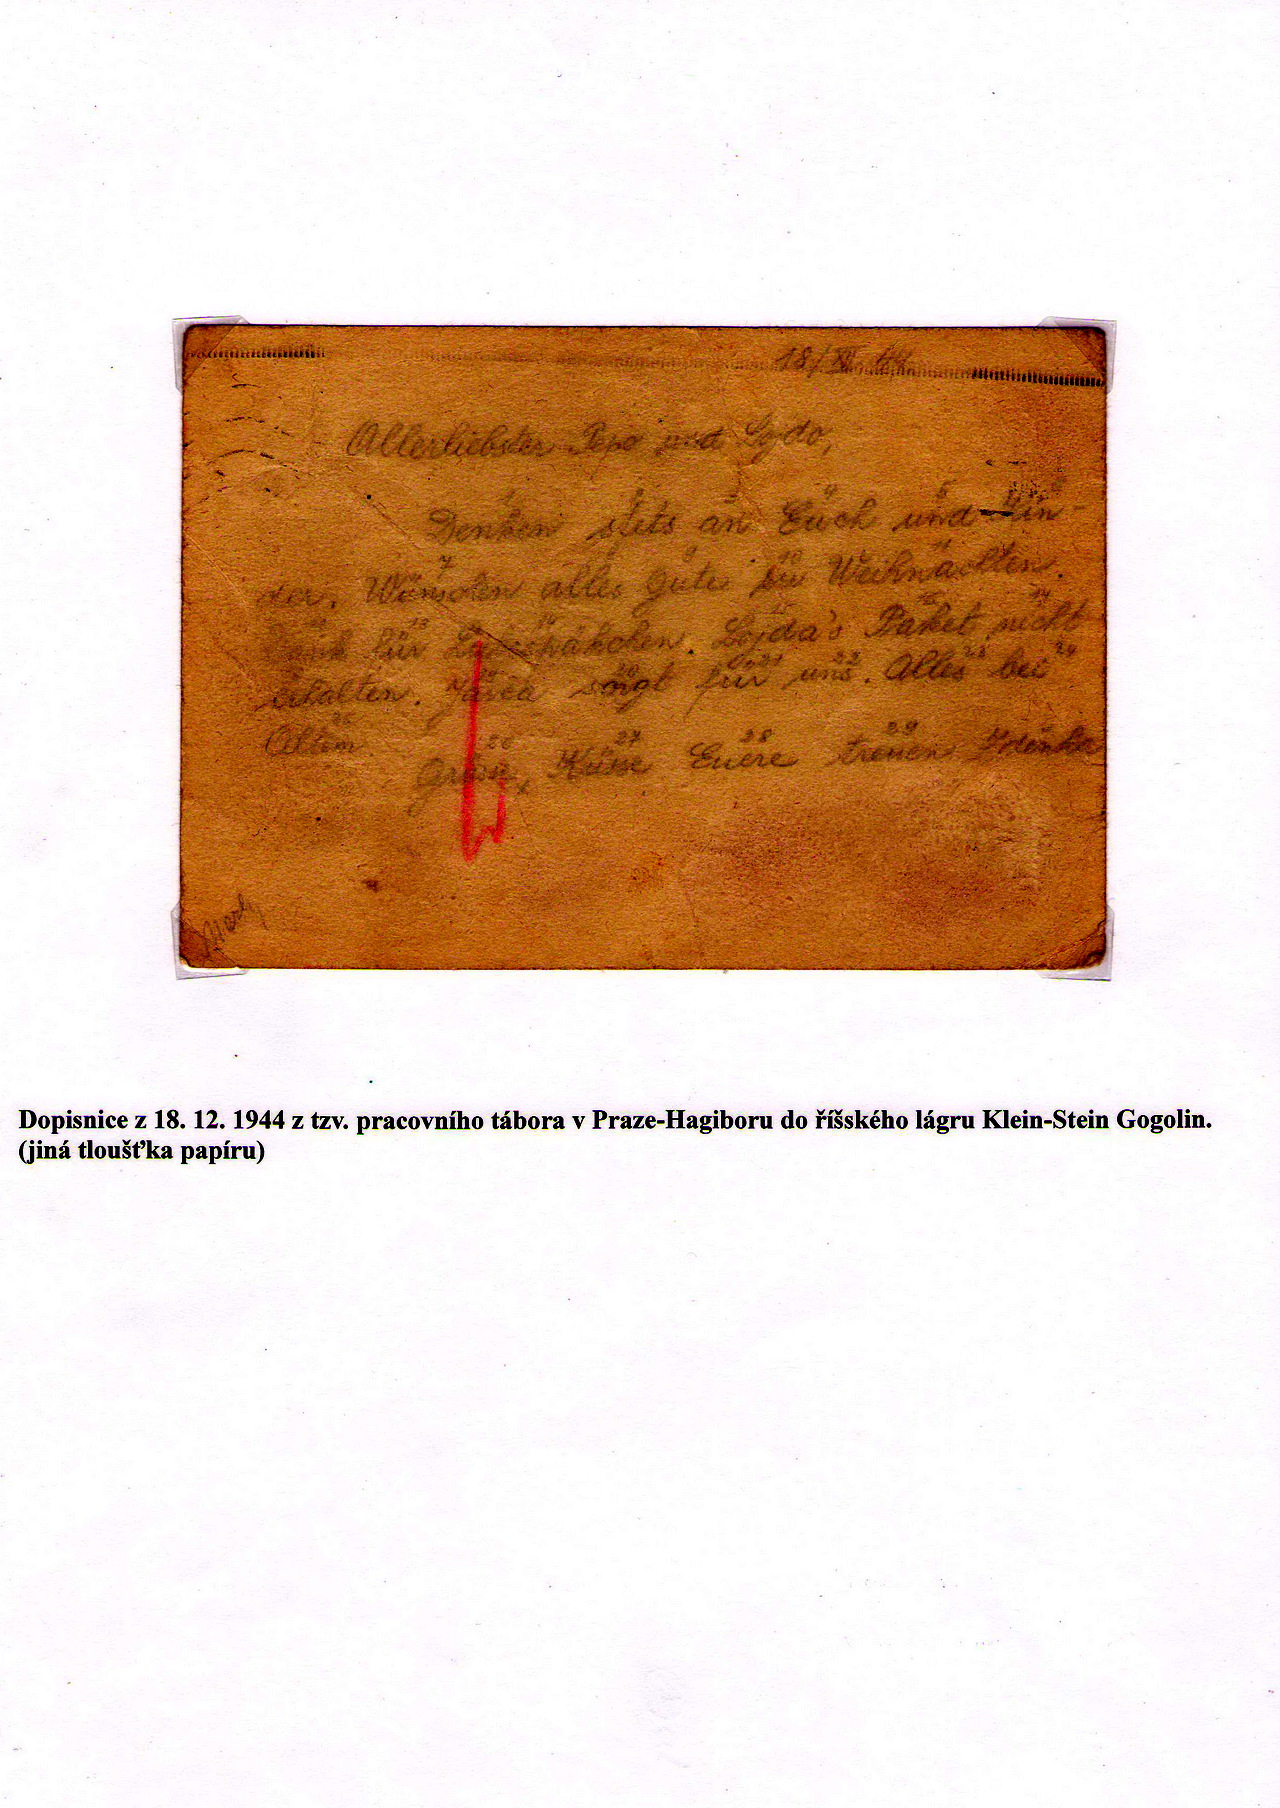 18/XII. 44
Allerliebster Pepo und Lojdo,
Denken stets an Euch und Kin-
der. Wünschen alles Gute zu Weihnachten.
Dank für. Lojda's Paket nicht
erhalten. sorgt für uns. Alles bei
Altem.
Grüsse, Küsse Euere treuen Zdenka
Dopisnice z 18. 12. 1944 z tzv. pracovního tábora v Praze-Hagiboru do říšského lágru Klein-Stein Gogolin.
(jiná tloušťka papíru)